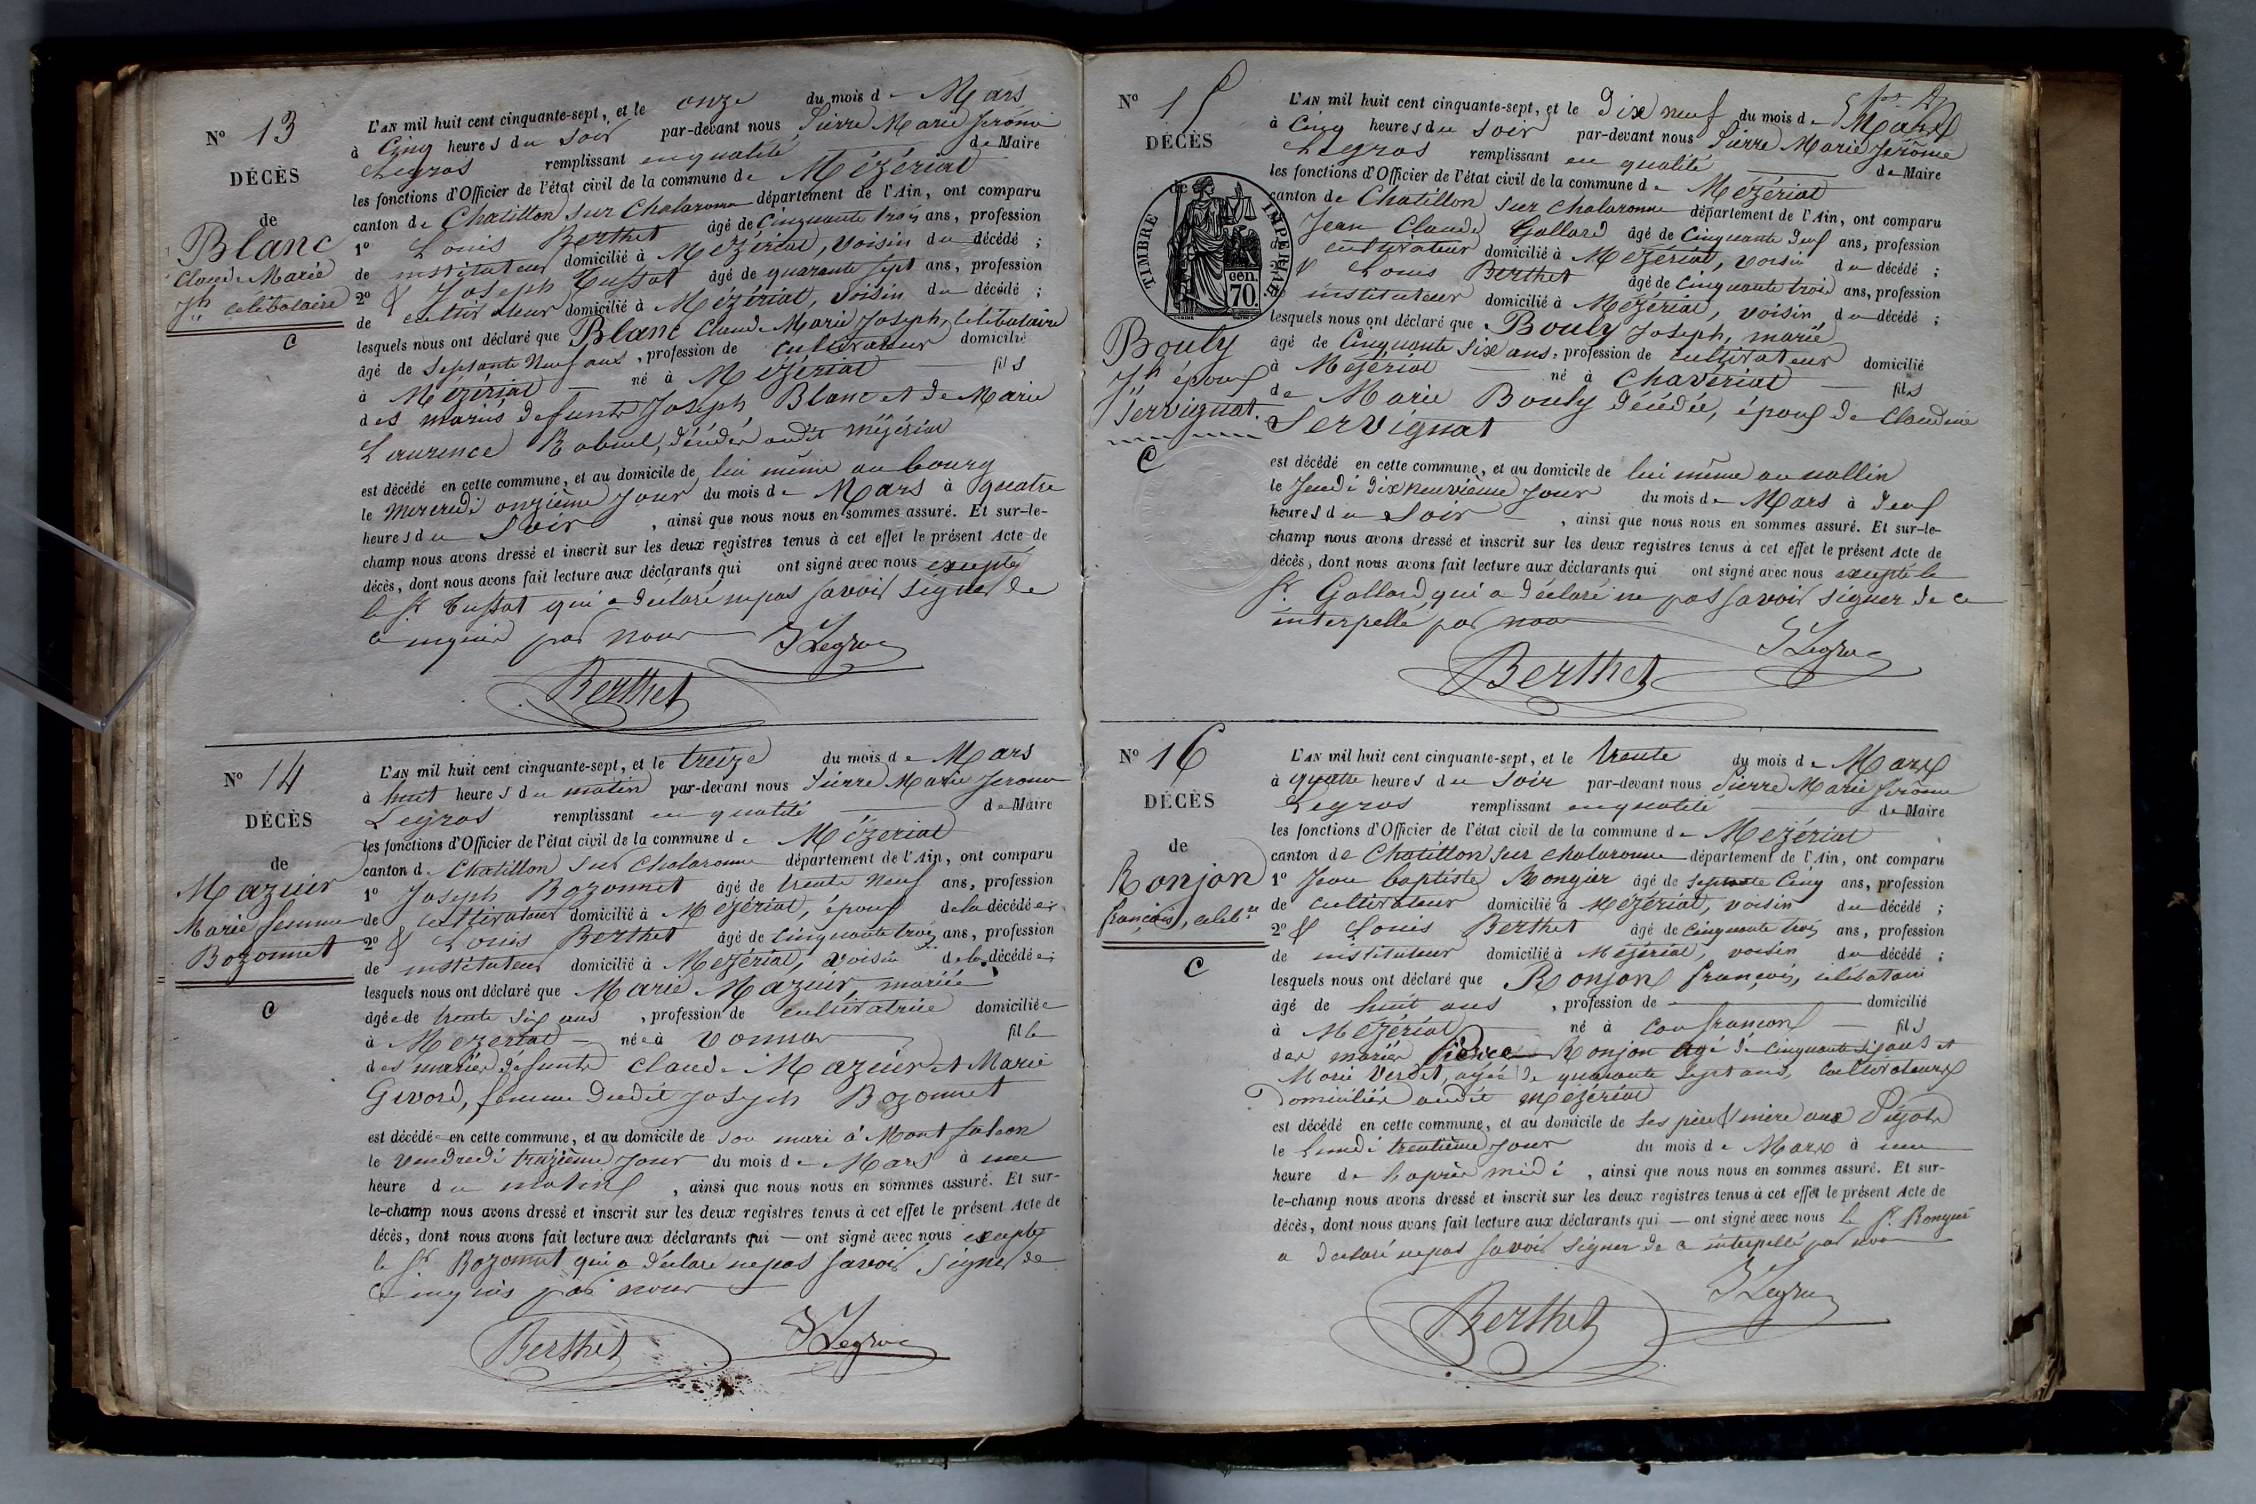 N° 13
DÉCÈS
de
Blanc
Claude Marie
Jh celibataire
C
L'AN mil huit cent cinquante-sept, et le onze du mois de Mars
à Cinq heures du soir par-devant nous Pierre Marie Jerôme
Legros remplissant en qualité de Maire
les fonctions d'Officier de l'état civil de la commune de Mézériat
canton de Chatillon sur Chalaronne département de l'Ain, ont comparu
1° Louis Berthet âgé de Cinquante trois ans, profession
de instituteur domicilié à Mézériat, voisin du décédé ;
2° & Joseph Tussat âgé de quarante sept ans, profession
de cultivateur domicilié à Mézériat, voisin du décédé ;
lesquels nous ont déclaré que Blanc Claude Marie Joseph, celibataire
âgé de septante Neuf ans, profession de cultivateur domicilié
à Mézériat né à Mézériat fils
des mariés defunts Joseph Blanc et de Marie
Laurence décédés audit mézériat
est décédé en cette commune, et au domicile de lui même au bourg
le mercredi onzième jour du mois de Mars à quatre
heures du Soir, ainsi que nous nous en sommes assuré. Et sur-le-
champ nous avons dressé et inscrit sur les deux registres tenus à cet effet le présent Acte de
décès, dont nous avons fait lecture aux déclarants qui ont signé avec nous excepté
le Sr Tussat qui a déclaré ne pas savoir signer de
ce enquis par nous
J Legros
Berthet
N° 14
DÉCÈS
de
Mazuir
Marie femme
Bozonnet
C
L'AN mil huit cent cinquante-sept, et le treize du mois de Mars
à huit heures du matin par-devant nous Pierre Marie Jerome
Legros remplissant en qualité de Maire
les fonctions d'Officier de l'état civil de la commune de Mézériat
canton de Chatillon sur Chalaronne département de l'Ain, ont comparu
1° Joseph Bozonnet âgé de trente Neuf ans, profession
de cultivateur domicilié à Mézériat, époux de la décédée ;
2° & Louis Berthet âgé de cinquante trois ans, profession
de instituteur domicilié à Mézériat, voisin de la décédée ;
lesquels nous ont déclaré que Marie Mazuir, mariée
âgée de trente six ans, profession de cultivatrice domiciliée
à Mezeriat née à Vonnas fille
des mariés défunts Claude Mazuir et Marie
Givord, femme dudit Joseph Bozonnet
est décédée en cette commune, et au domicile de son mari à Mont falcon
le Vendredi treizième jour du mois de Mars à une
heure du matin, ainsi que nous nous en sommes assuré. Et sur-
le-champ nous avons dressé et inscrit sur les deux registres tenus à cet effet le présent Acte de
décès, dont nous avons fait lecture aux déclarants qui — ont signé avec nous excepté
le Sr Bozonnet qui a déclaré ne pas savoir signer de
ce enquis par nous
Berthet J Legros
N° 15
DÉCÈS
de
TIMBRE IMPERIAL
70 cen.
Bouly
Jh époux
Servignat.
C
L'AN mil huit cent cinquante-sept, et le Dix neuf du mois de Mars
à Cinq heures du soir par-devant nous Pierre Marie Jérôme
Legros remplissant en qualité de Maire
les fonctions d'Officier de l'état civil de la commune de Mézériat
canton de Chatillon sur chalaronne département de l'Ain, ont comparu
Jean Claude Gallard âgé de Cinquante deux ans, profession
de cultivateur domicilié à Mézériat, voisin du décédé ;
& Louis Berthet âgé de Cinquante trois ans, profession
instituteur domicilié à Mezériat, voisin du décédé ;
lesquels nous ont déclaré que Bouly Joseph, marié
âgé de Cinquante six ans, profession de cultivateur domicilié
à Mézériat né à Chavériat fils
de Marie Bouly décédée, époux de Claudine
Servignat
est décédé en cette commune, et au domicile de lui même au
le Jeudi dix neuvième jour du mois de Mars à deux
heures du Soir, ainsi que nous nous en sommes assuré. Et sur-le-
champ nous avons dressé et inscrit sur les deux registres tenus à cet effet le présent Acte de
décès, dont nous avons fait lecture aux déclarants qui ont signé avec nous excepté le
Sr Gallard qui a déclaré ne pas savoir signer de ce
interpellé par nous
J Legros
Berthet
N° 16
DÉCÈS
de
Ronjon
françois, celibre
C
L'AN mil huit cent cinquante-sept, et le trente du mois de Mars
à quatre heures du soir par-devant nous Pierre Marie Jerôme
Legros remplissant en qualité de Maire
les fonctions d'Officier de l'état civil de la commune de Mezériat
canton de Chatillon sur chalaronne département de l'Ain, ont comparu
1° Jean baptiste Rongier âgé de septante Cinq ans, profession
de cultivateur domicilié à Mézériat, voisin du décédé ;
2° & Louis Berthet âgé de cinquante trois ans, profession
de instituteur domicilié à Mézériat, voisin du décédé ;
lesquels nous ont déclaré que Ronjon françois, célibataire
âgé de huit ans, profession de domicilié
à Mézériat né à Confrançon fils
des mariés Pierre Ronjon agé de cinquante six ans et
Marie Verdet, agée de quarante sept ans, cultivateurs
domiciliés audit mézériat
est décédé en cette commune, et au domicile de ses père & mère aux
le Lundi trentième jour du mois de Mars à une
heure de l'aprés midi, ainsi que nous nous en sommes assuré. Et sur-
le-champ nous avons dressé et inscrit sur les deux registres tenus à cet effet le présent Acte de
décès, dont nous avons fait lecture aux déclarants qui — ont signé avec nous le Sr Rongier
a déclaré ne pas savoir signer de ce interpellé par nous
J Legros
Berthet